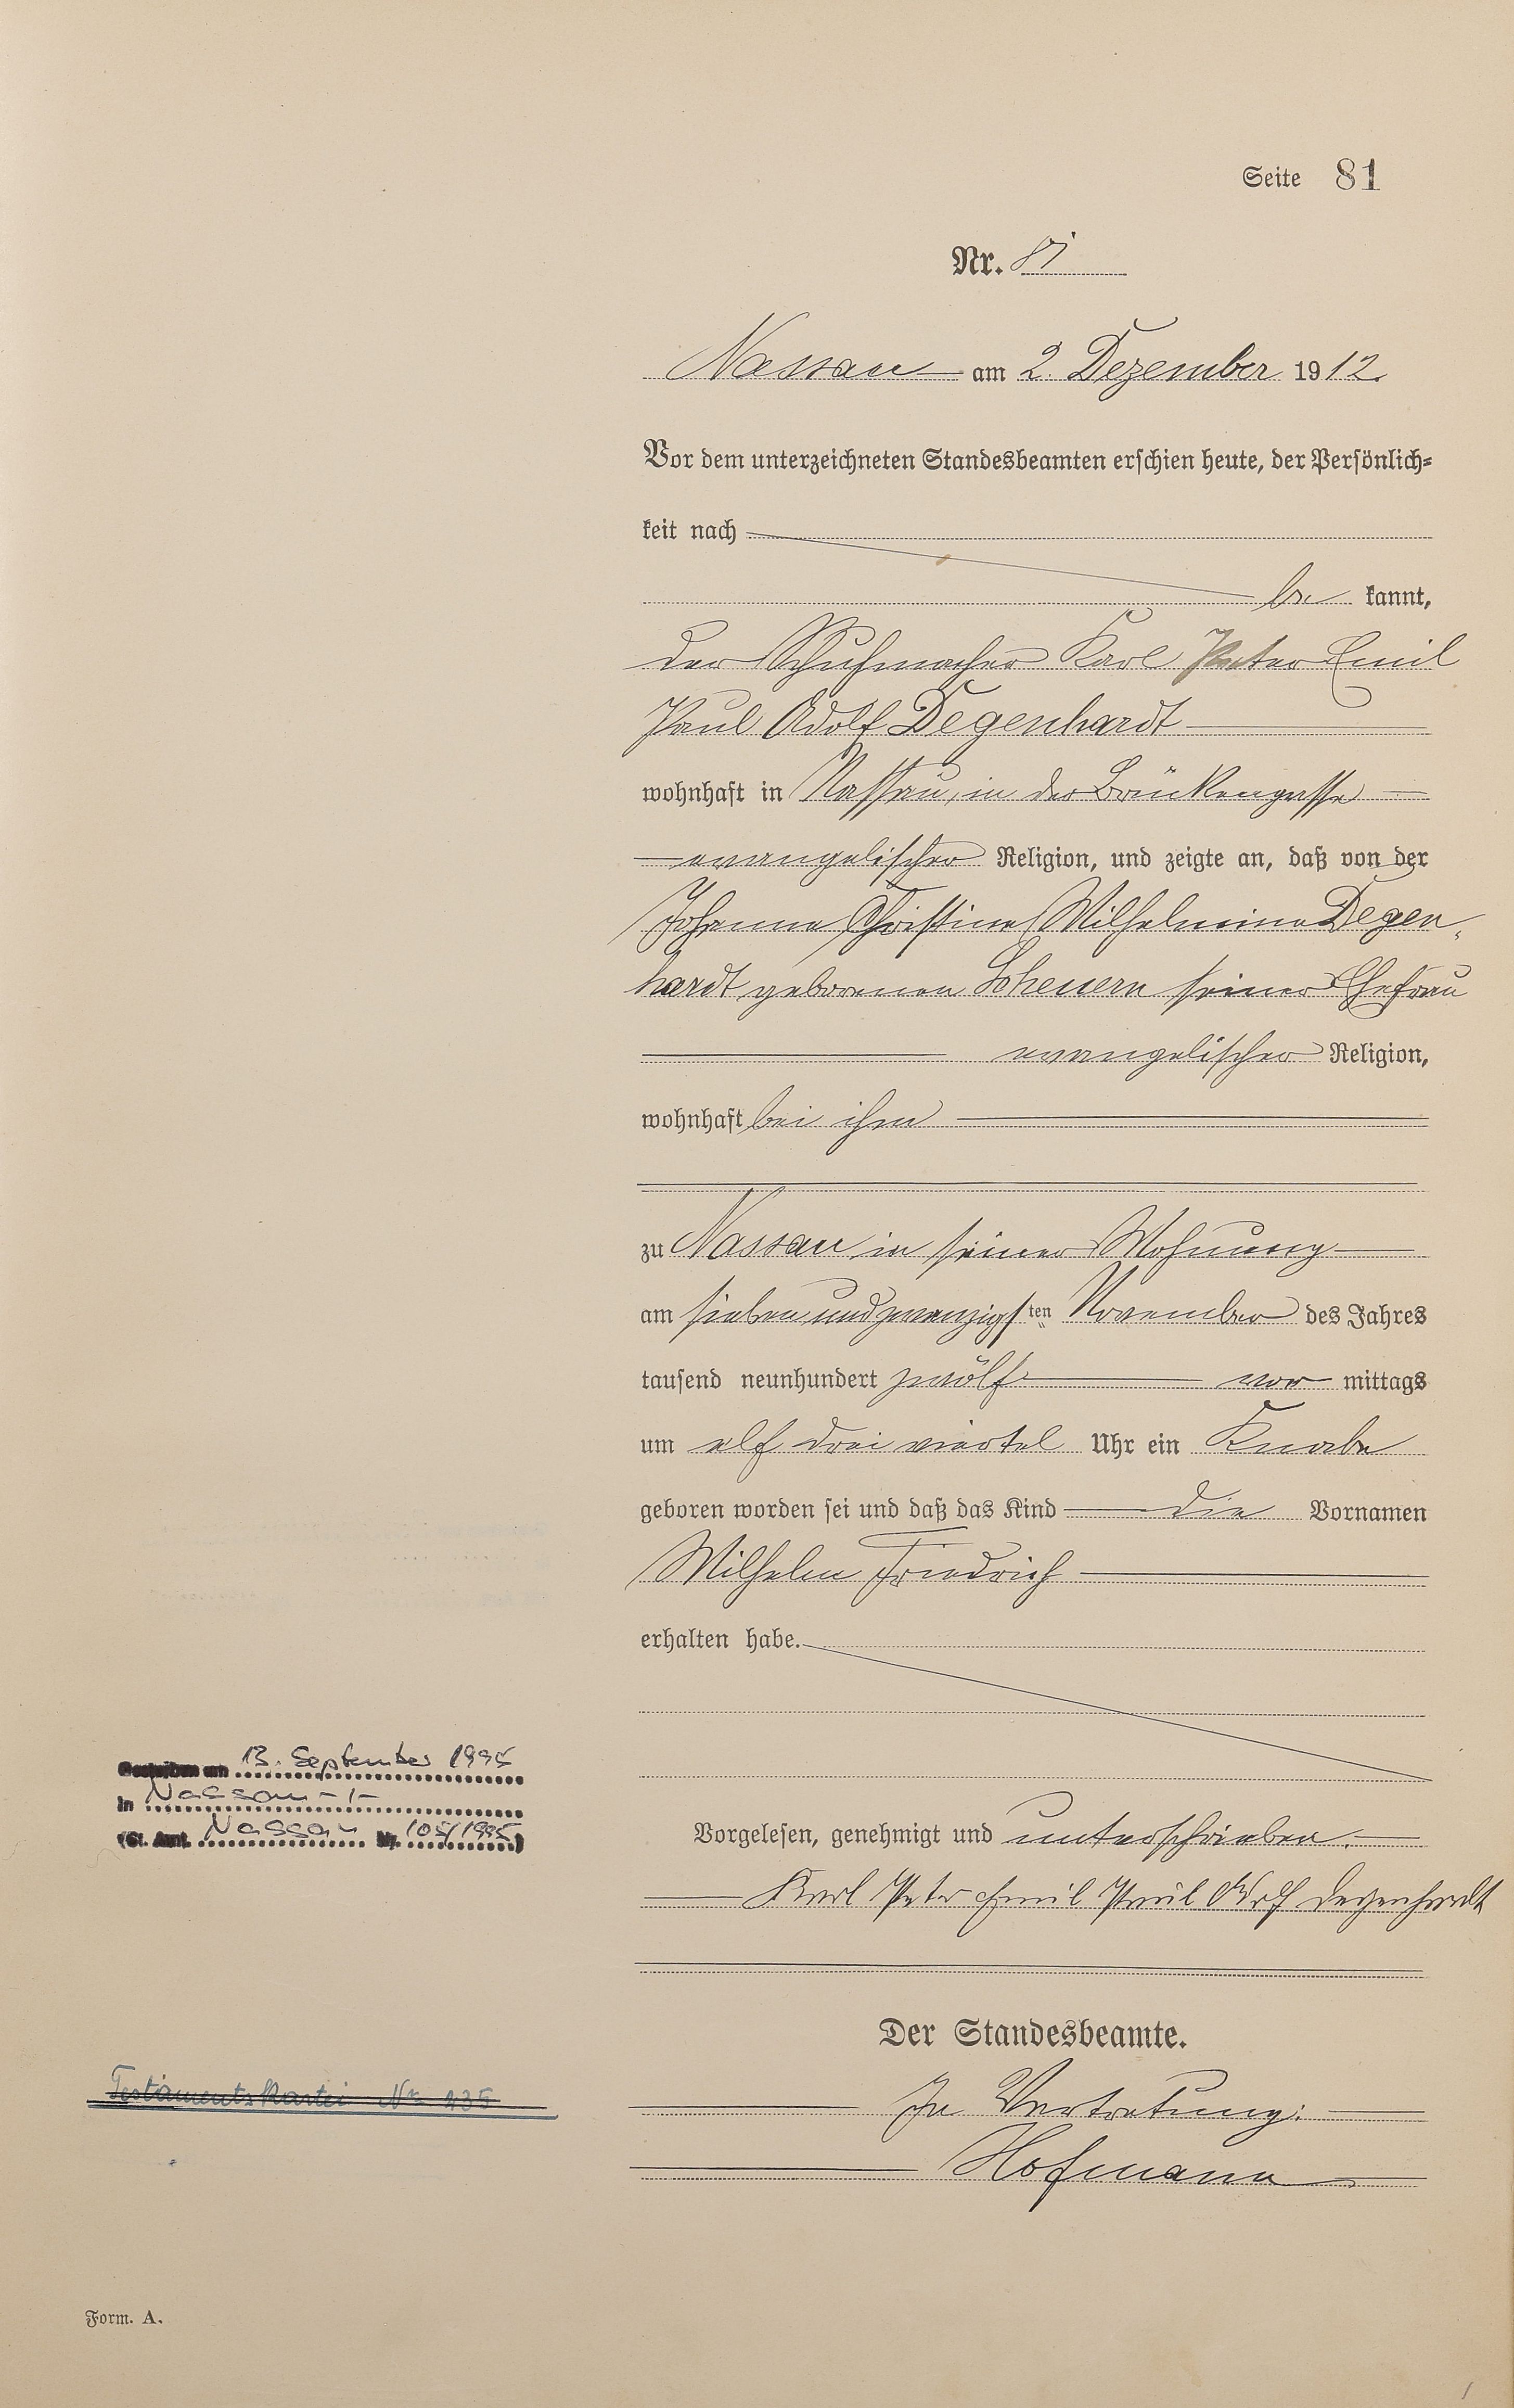 Seite 81
Nr. 81
Nassau am 2. Dezember 1912.
Vor dem unterzeichneten Standesbeamten erschien heute, der Persönlich-
keit nach
be kannt,
der Schuhmacher Karl Peter Emil
Paul Adolf Degenhardt
wohnhaft in Nassau, in der Brückengasse
evangelischer Religion, und zeigte an, daß von der
Johanna Christina Wilhelmina Degen-
hardt geborenen Scheuern seiner Ehefrau
evangelischer Religion,
wohnhaft bei ihm
zu Nassau in seiner Wohnung
am siebenundzwanzigsten November des Jahres
tausend neunhundert zwölf vor mittags
um elf drei viertel Uhr ein Knabe
geboren worden sei und daß das Kind die Vornamen
Wilhelm Friedrich
erhalten habe.
Gestorben am 13. September 1995
in Nassau -/-
(St. Amt. Nassau Nr. 105/1995)
Vorgelesen, genehmigt und unterschrieben.
Karl Peter Emil Paul Adolf Degenhardt
Der Standesbeamte.
Testamentskartei Nr 235
In Vertretung:
Hofmann
Form. A.